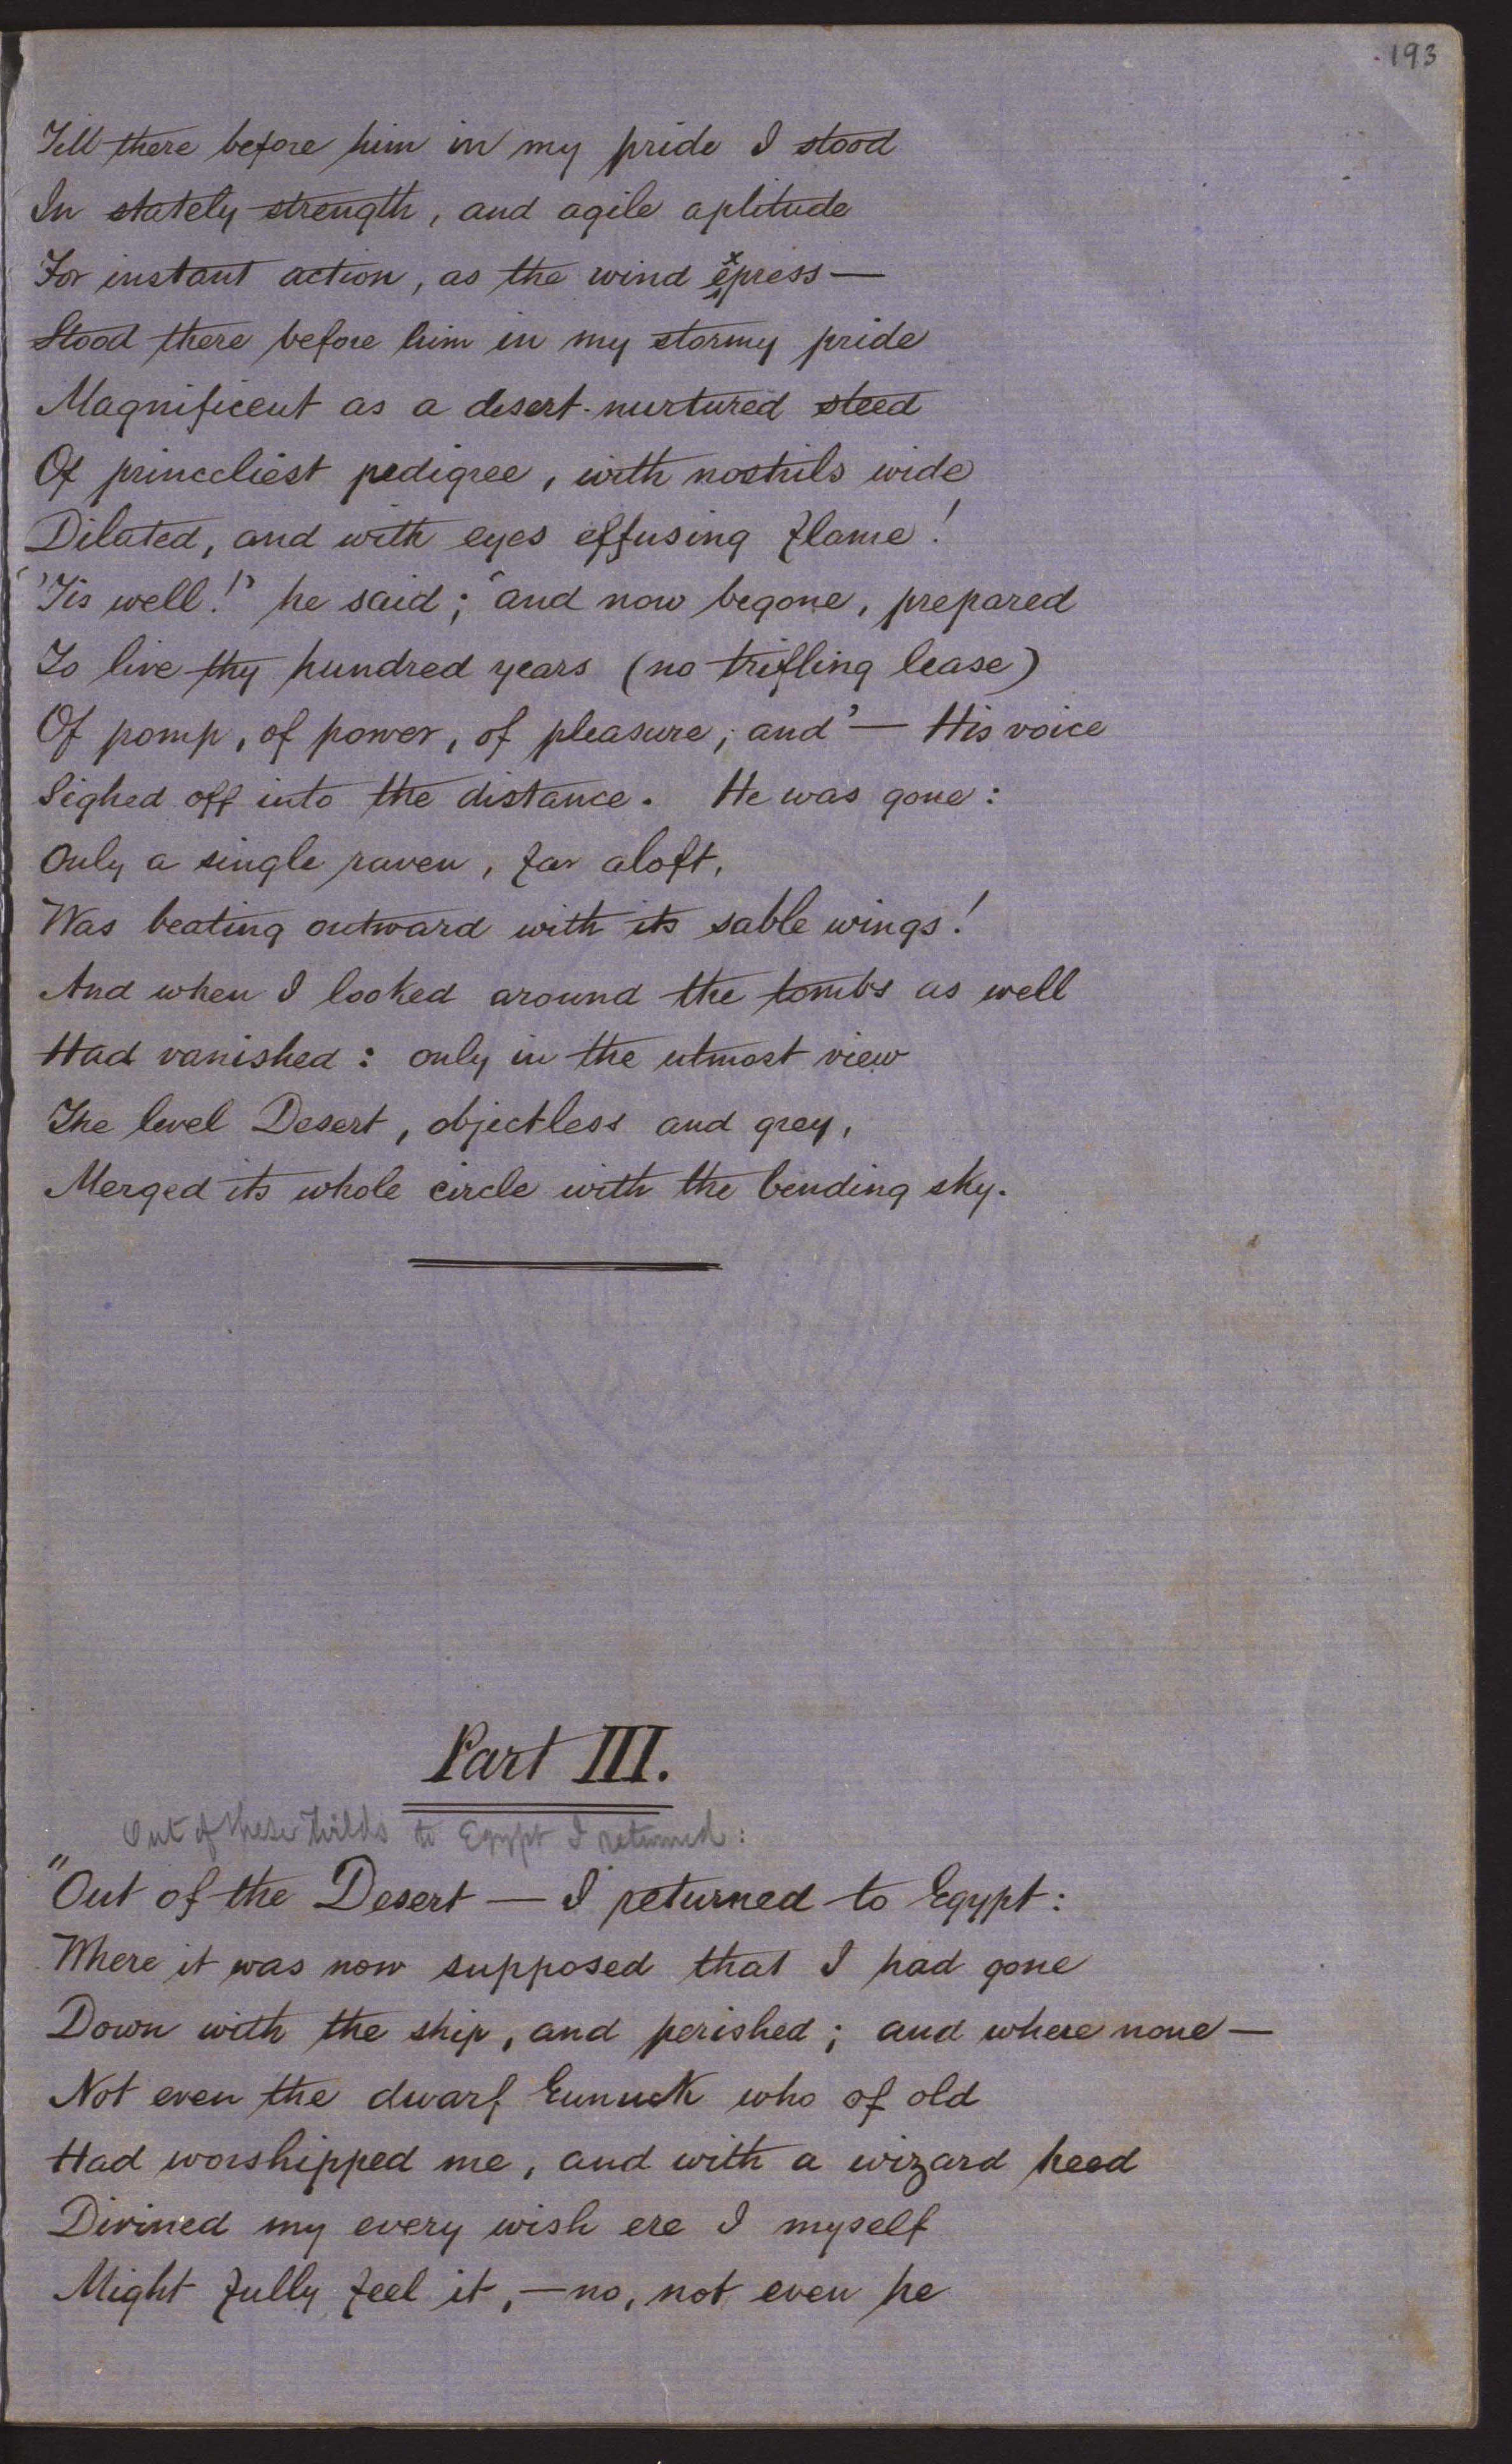 193
Till there before him in my pride I stood
In stately strength, and agile aplitude
For instant action, as the wind express—
Stood there before him in my stormy pride
Magnificent as a desert-nurtured steed
Of princeliest pedigree, with nostrils wide
Dilated, and with eyes effusing flame!
‘'Tis well!’ he said; ‘and now begone, prepared
To live thy hundred years (no trifling lease)
Of pomp, of power, of pleasure; and’— His voice
Sighed off into the distance. He was gone:
Only a single raven, far aloft,
Was beating outward with its sable wings!
And when I looked around the tombs as well
Had vanished: only in the utmost view
The level Desert, objectless and grey,
Merged its whole circle with the bending sky.
Part III.
Out of these Wilds to Egypt I returned:
"Out of the Desert — I returned to Egypt:
Where it was now supposed that I had gone
Down with the ship, and perished; and where none—
Not even the dwarf Eunuck who of old
Had worshipped me, and with a wizard heed
Divined my every wish ere I myself
Might fully feel it,—no, not even he